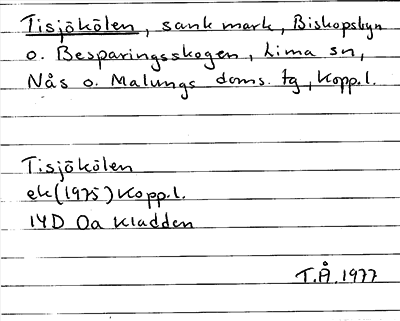 Tisjökölen, sank mark, Biskopsbyn
o. Besparingsskogen, Lima sn,
Nås o. Malungs doms. tg, Kopp.l.
Tisjökölen
ek(1975) Kopp.l.
14D 0a Kladden
T.Å. 1977